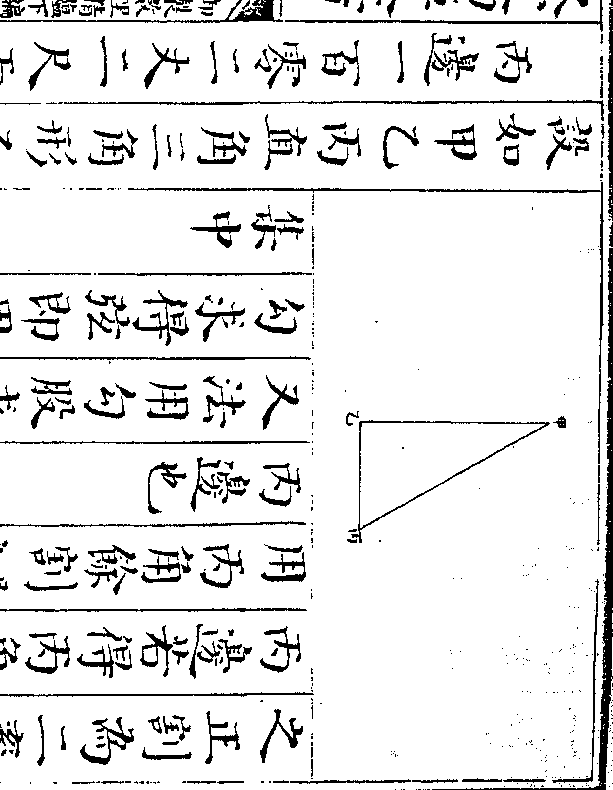 之正割為二率
丙邊若得丙角
用丙角餘割
丙邊也
又法用勾股求
勾求得弦即甲
集中
甲
乙
丙
設如甲乙丙直角三角形乙
丙邊一百零二丈二尺五